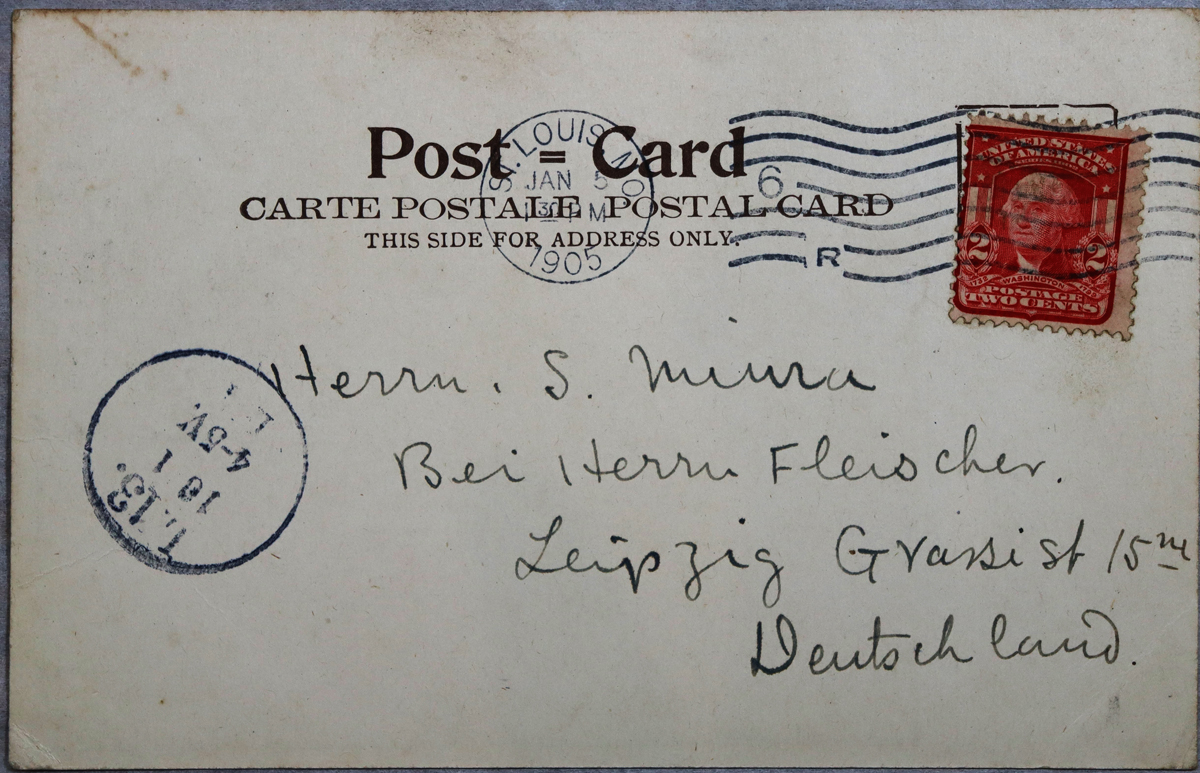 Post = Card
CARTE POSTALE POSTAL CARD
THIS SIDE FOR ADDRESS ONLY.
ST. LOUIS, MO
JAN 5
30 PM
1905
6
R
UNITED STATES
OF AMERICA
2 2
WASHINGTON
POSTAGE
TWO CENTS
Herrn. S. Miura
Bei Herrn Fleischer.
Leipzig Grassist 15
Deutschland.
L.13.
1
4-5V.